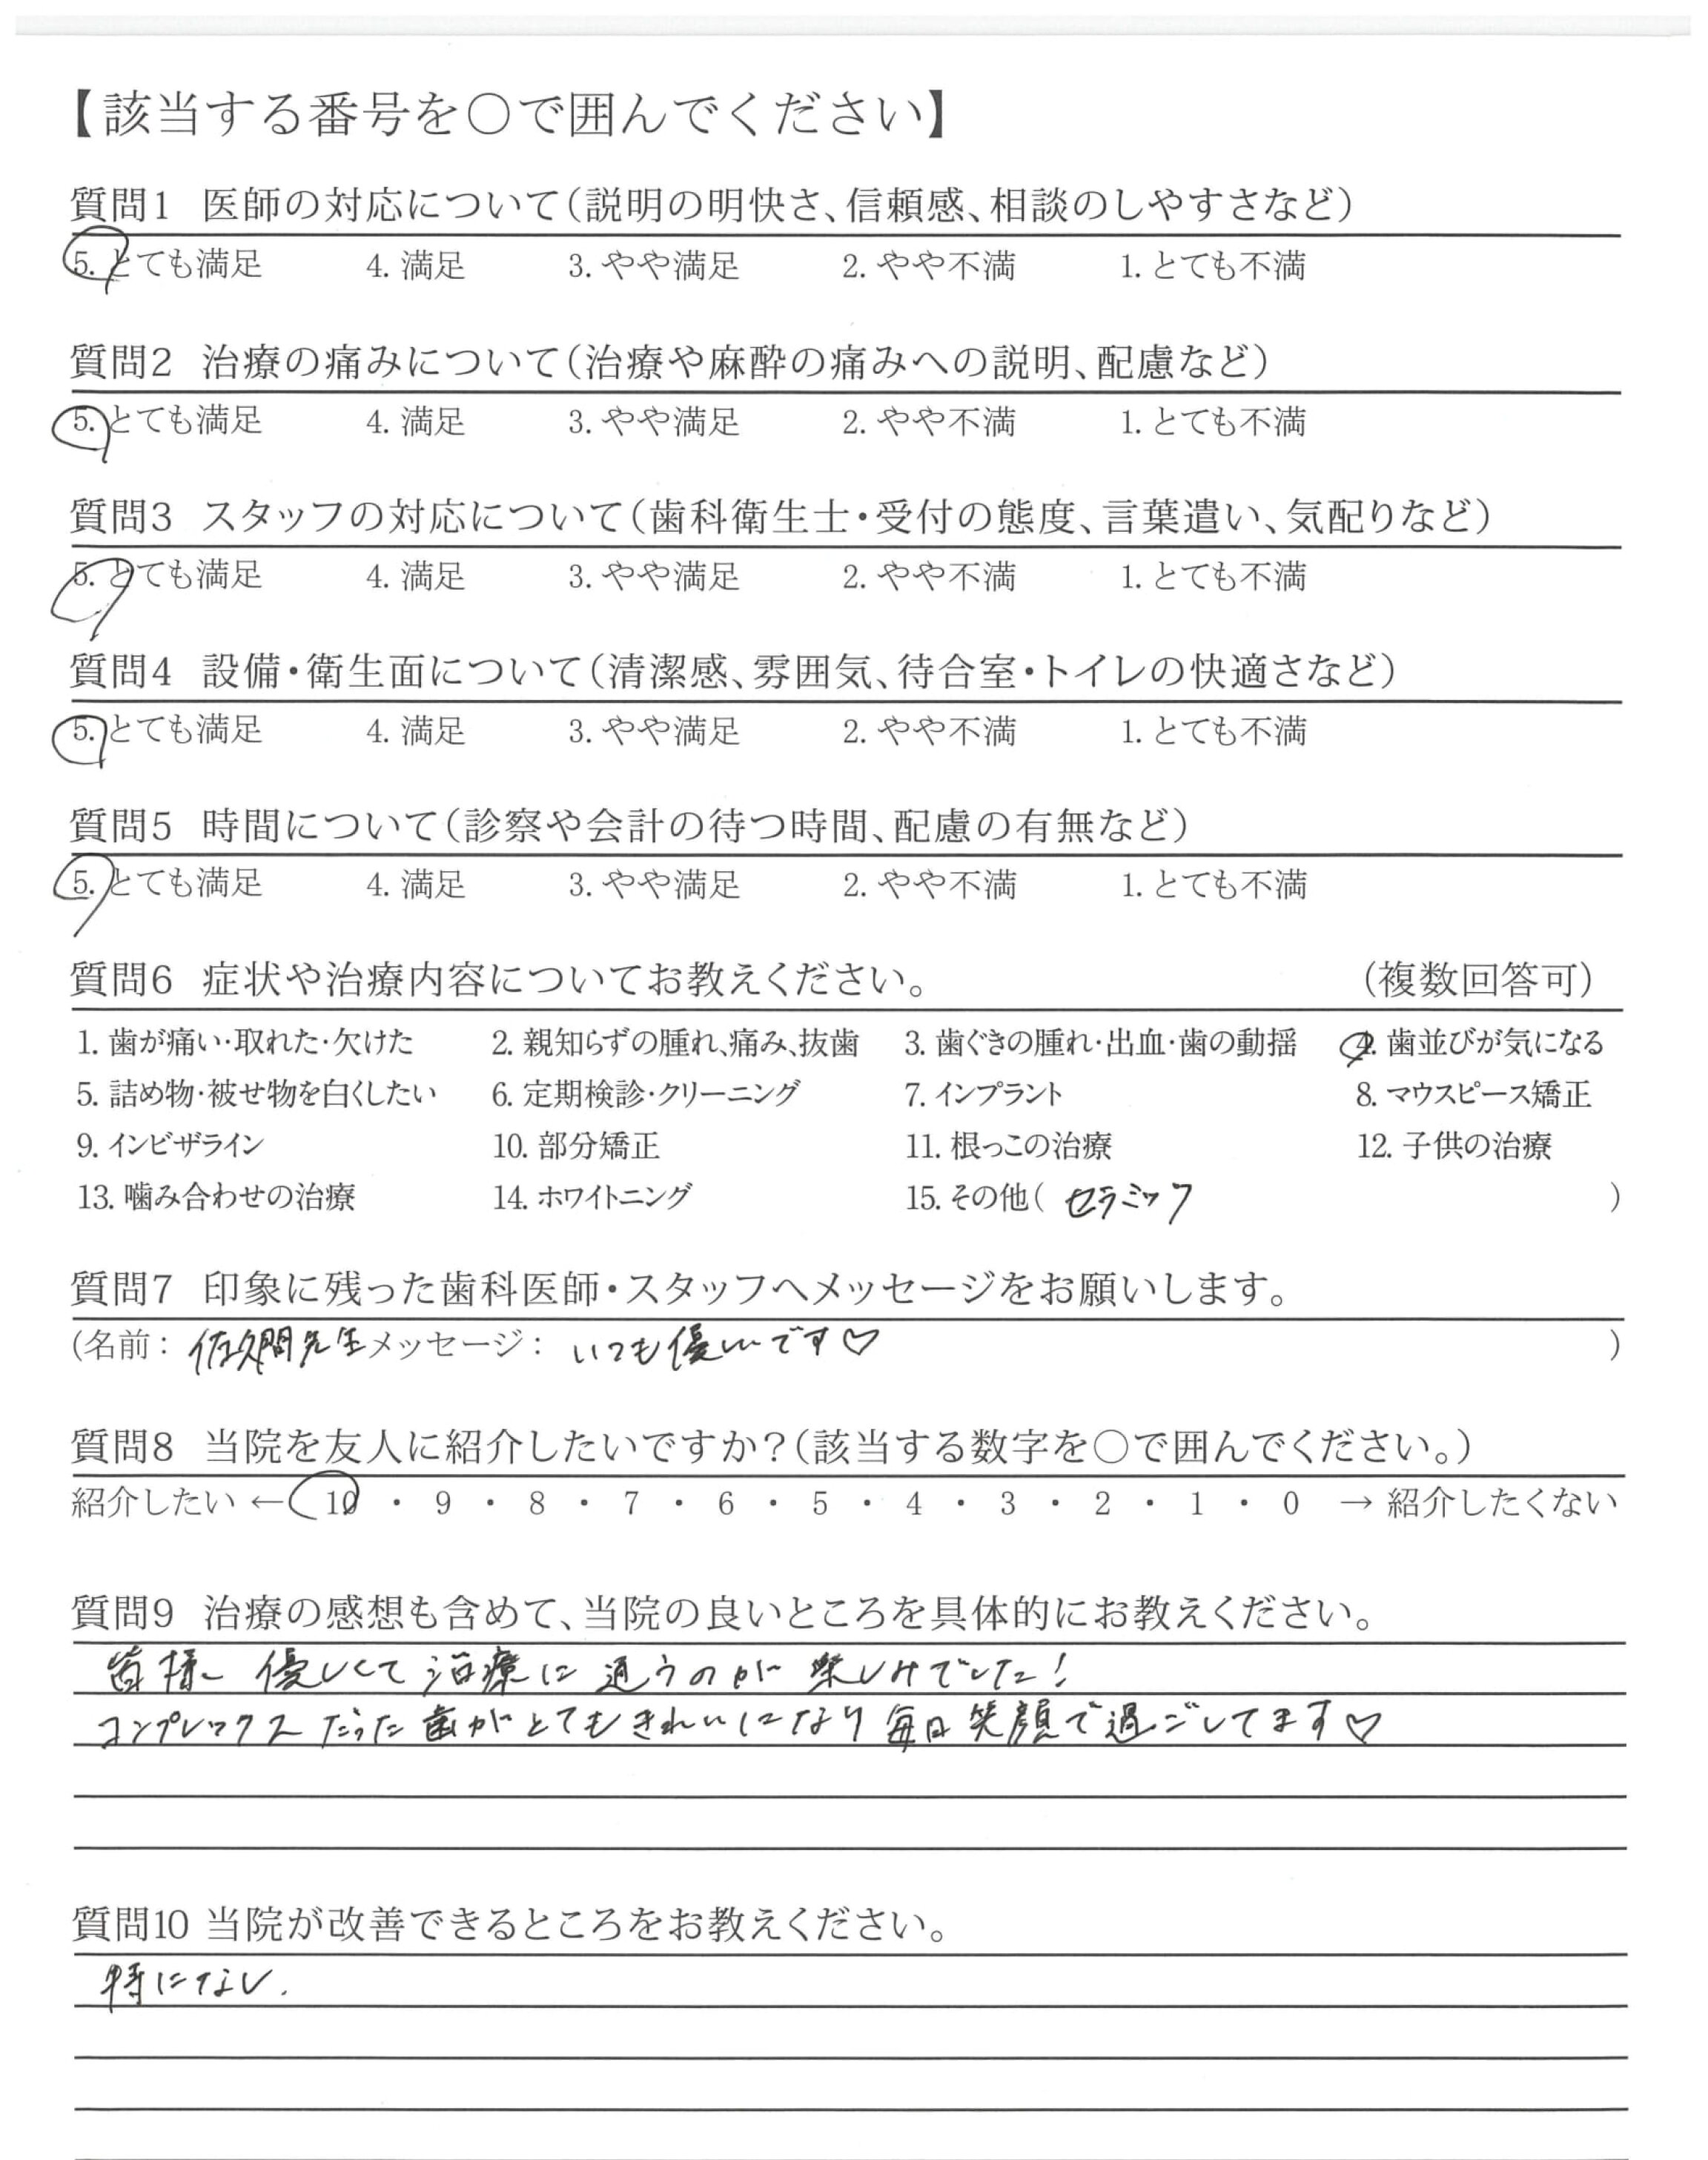 【該当する番号を○で囲んでください】
質問1 医師の対応について(説明の明快さ、信頼感、相談のしやすさなど)
5. とても満足 4. 満足 3. やや満足 2. やや不満 1. とても不満
質問2 治療の痛みについて(治療や麻酔の痛みへの説明、配慮など)
5. とても満足 4. 満足 3. やや満足 2. やや不満 1. とても不満
質問3 スタッフの対応について(歯科衛生士・受付の態度、言葉遣い、気配りなど)
5. とても満足 4. 満足 3. やや満足 2. やや不満 1. とても不満
質問4 設備・衛生面について(清潔感、雰囲気、待合室・トイレの快適さなど)
5. とても満足 4. 満足 3. やや満足 2. やや不満 1. とても不満
質問5 時間について(診察や会計の待つ時間、配慮の有無など)
5. とても満足 4. 満足 3. やや満足 2. やや不満 1. とても不満
質問6 症状や治療内容についてお教えください。 (複数回答可)
1. 歯が痛い・取れた・欠けた 2. 親知らずの腫れ、痛み、抜歯 3. 歯ぐきの腫れ・出血・歯の動揺 4. 歯並びが気になる
5. 詰め物・被せ物を白くしたい 6. 定期検診・クリーニング 7. インプラント 8. マウスピース矯正
9. インビザライン 10. 部分矯正 11. 根っこの治療 12. 子供の治療
13. 噛み合わせの治療 14. ホワイトニング 15. その他( セラミック )
質問7 印象に残った歯科医師・スタッフへメッセージをお願いします。
(名前: 佐久間先生 メッセージ: いつも優しいです♡ )
質問8 当院を友人に紹介したいですか?(該当する数字を○で囲んでください。)
紹介したい ← 10 ・ 9 ・ 8 ・ 7 ・ 6 ・ 5 ・ 4 ・ 3 ・ 2 ・ 1 ・ 0 → 紹介したくない
質問9 治療の感想も含めて、当院の良いところを具体的にお教えください。
皆様 優しくて 治療に 通うのが 楽しみでした!
コンプレックス だった 歯がとてもきれいになり 毎日 笑顔で過ごしてます♡
質問10 当院が改善できるところをお教えください。
特になし.